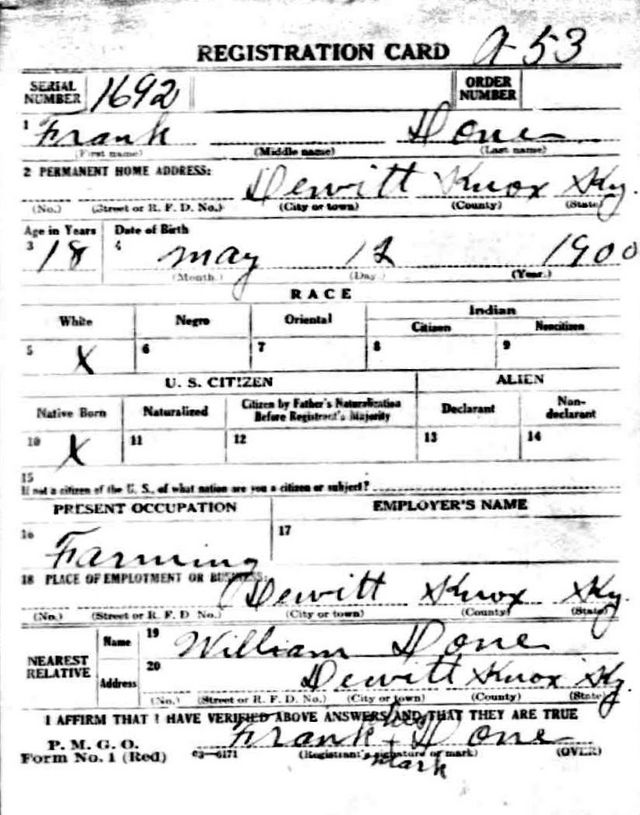 REGISTRATION CARD A-53
SERIAL NUMBER 1692 ORDER NUMBER
1 Frank Done
(First name) (Middle name) (Last name)
2 PERMANENT HOME ADDRESS: Dewitt Knox Ky.
(No.) (Street or R. F. D. No.) (City or town) (County) (State)
Age in Years Date of Birth
3 18 4 May 12 1900
(Month.) (Day.) (Year.)
RACE
White Negro Oriental Indian
Citizen Noncitizen
5 X 6 7 8 9
U. S. CITIZEN ALIEN
Native Born Naturalized Citizen by Father's Naturalization Before Registrant's Majority Declarant Non-declarant
10 X 11 12 13 14
15
If not a citizen of the U. S., of what nation are you a citizen or subject?
PRESENT OCCUPATION EMPLOYER'S NAME
16 Farming 17
18 PLACE OF EMPLOYMENT OR BUSINESS: Dewitt Knox Ky.
(No.) (Street or R. F. D. No.) (City or town) (County) (State)
NEAREST RELATIVE Name 19 William Done
Address 20 Dewitt Knox Ky.
(No.) (Street or R. F. D. No.) (City or town) (County) (State)
I AFFIRM THAT I HAVE VERIFIED ABOVE ANSWERS AND THAT THEY ARE TRUE
P. M. G. O.
Form No. 1 (Red) 03—6171 Frank his x Done
(Registrant's signature or mark) (OVER)
mark